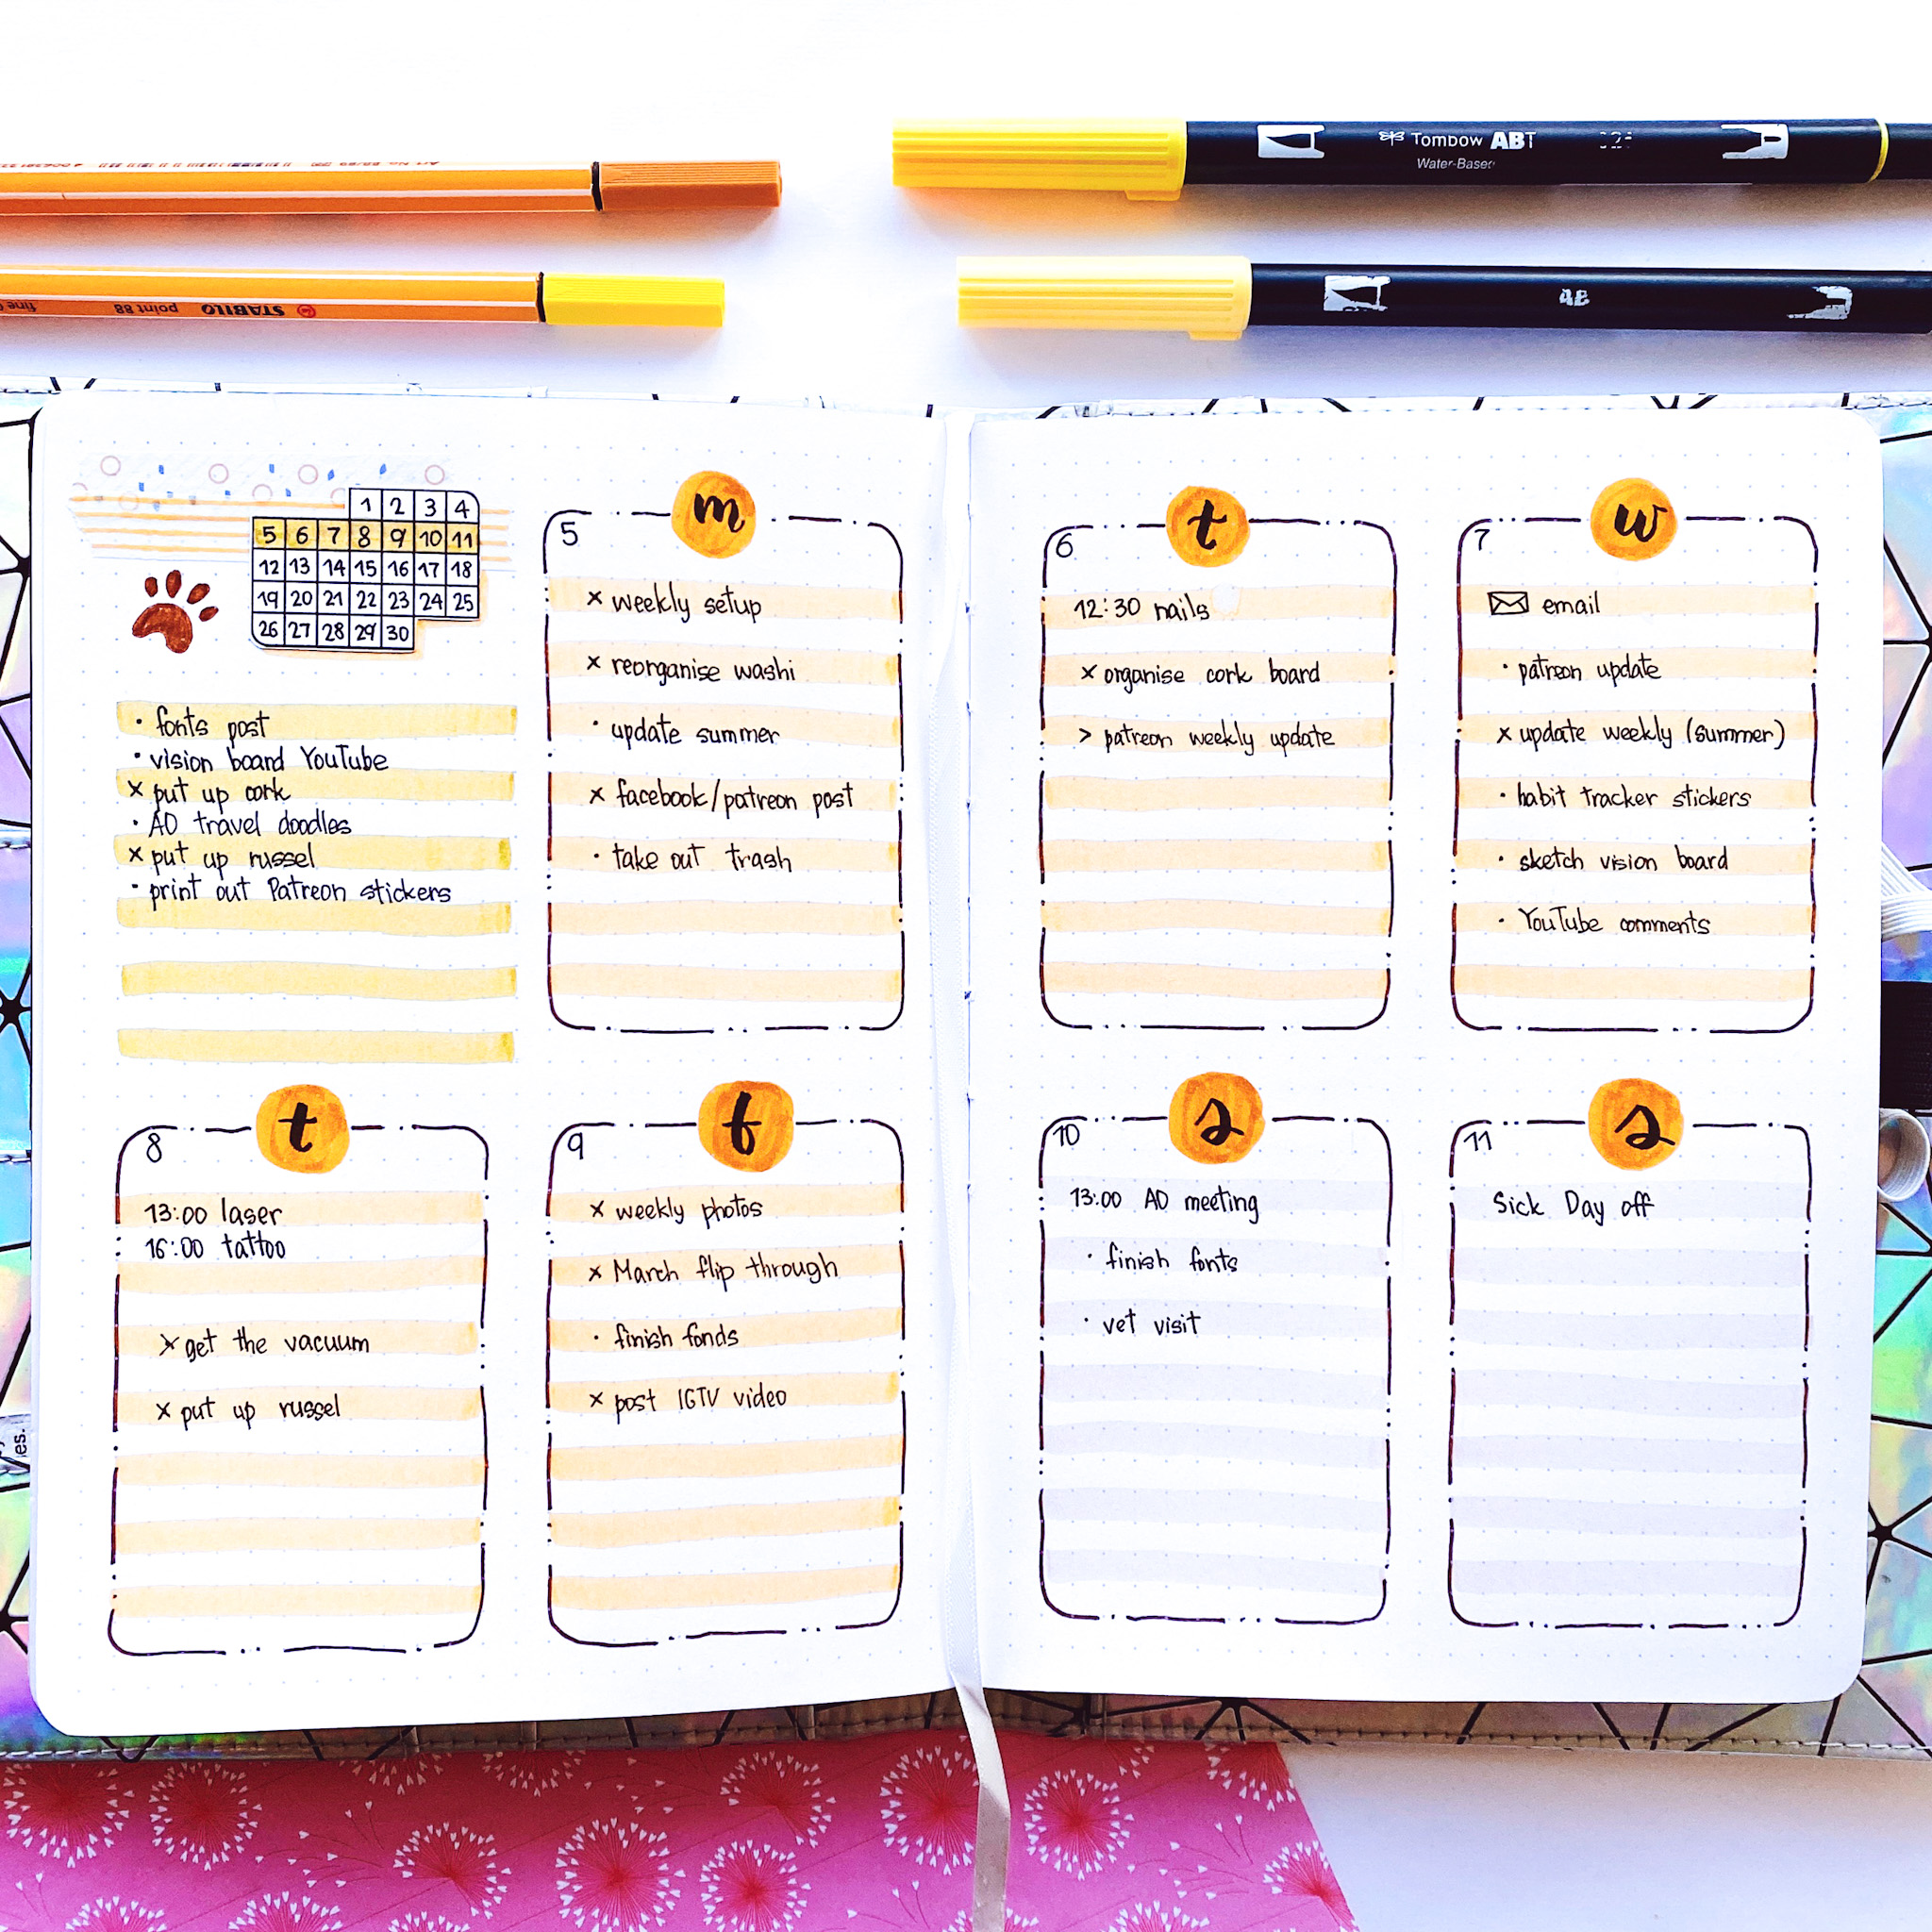 Tombow ABT
Water-Based
STABILO point 88 fine
1 2 3 4
5 6 7 8 9 10 11
12 13 14 15 16 17 18
19 20 21 22 23 24 25
26 27 28 29 30
· fonts post
· vision board YouTube
x put up cork
· AO travel doodles
x put up russel
· print out Patreon stickers
5 m
x weekly setup
x reorganise washi
· update summer
x facebook/patreon post
· take out trash
6 t
12:30 nails
x organise cork board
> patreon weekly update
7 w
email
· patreon update
x update weekly (summer)
· habit tracker stickers
· sketch vision board
· YouTube comments
8 t
13:00 laser
16:00 tattoo
x get the vacuum
x put up russel
9 f
x weekly photos
x March flip through
· finish fonds
x post IGTV video
10 s
13:00 AO meeting
· finish fonts
· vet visit
11 s
Sick Day off
es.